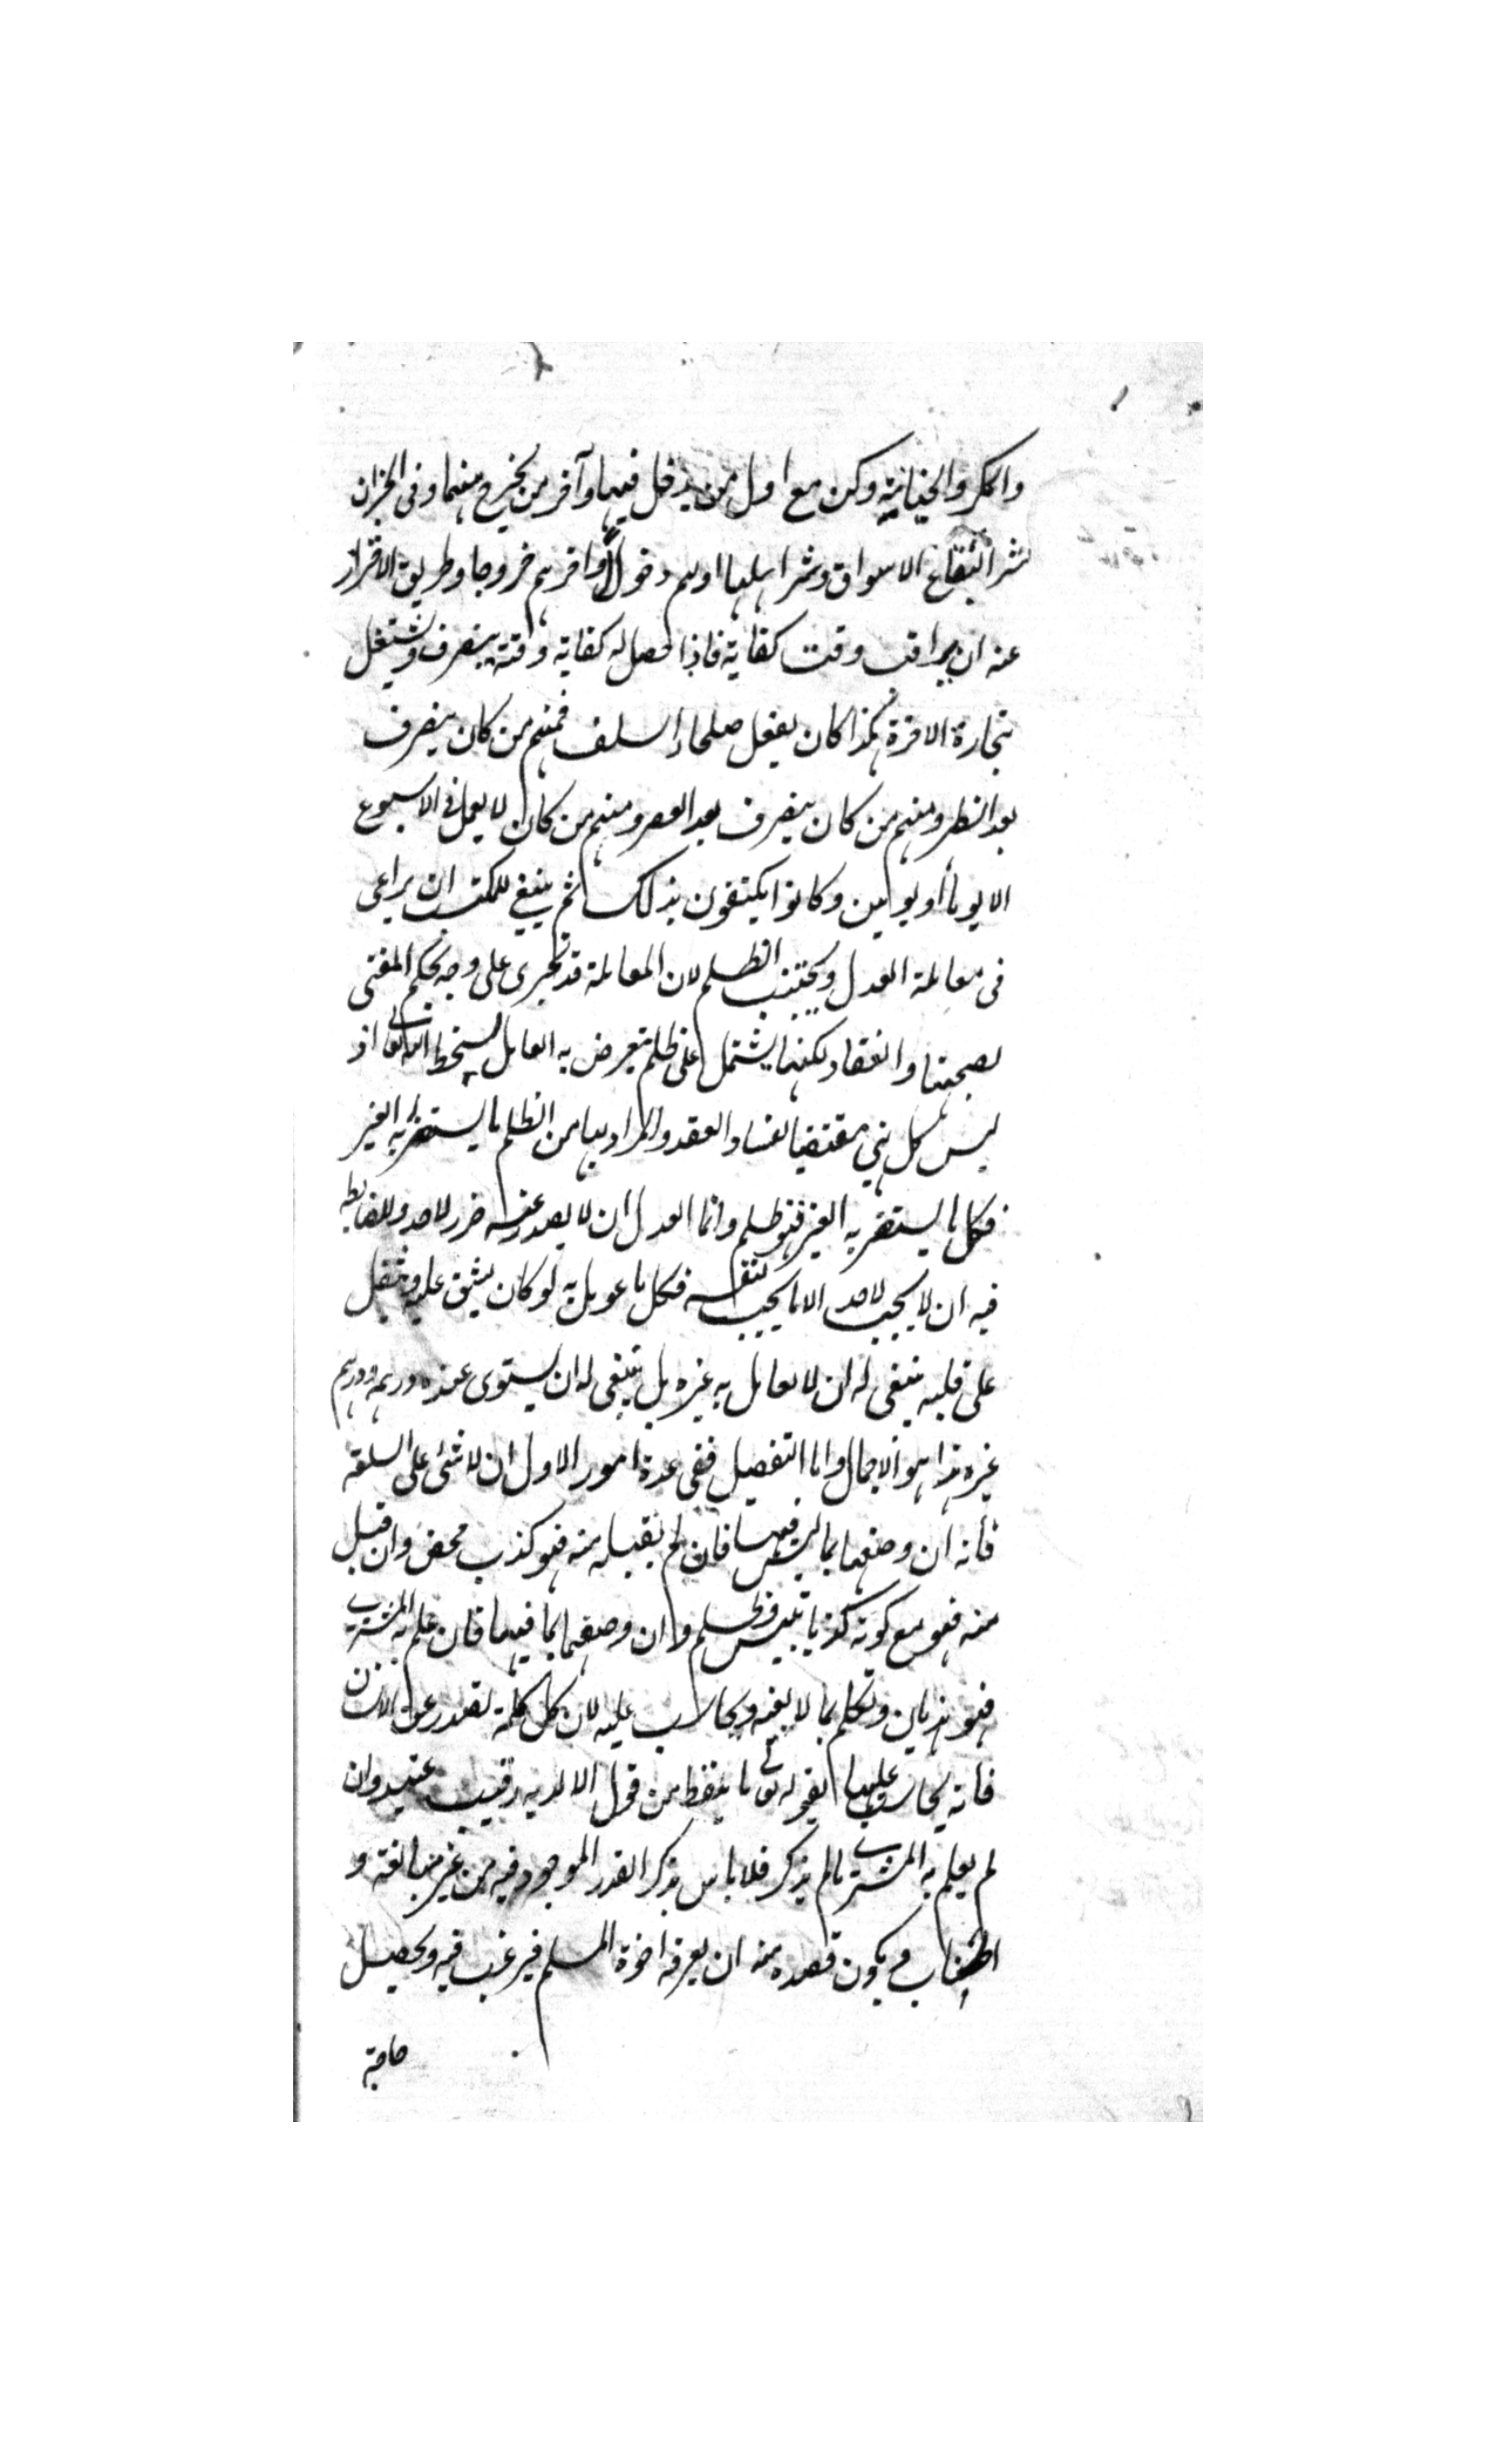 والمكر والخيانة وكن مع اول من يدخل فيها وآخر من يخرج منها وفى الخبر ان
شر البقاع الاسواق وشر اهلها اولهم دخولا وآخرهم خروجا وطريق الاحتراز
عنه ان يراقب وقت كفايته فاذا حصل له كفاية وقته ينصرف ويشتغل
بتجارة الاخرة هكذا كان يفعل صلحاء السلف فمنهم من كان ينصرف
بعد الظهر ومنهم من كان ينصرف بعد العصر ومنهم من كان لا يعمل فى الاسبوع
الا يوما أو يومين وكانوا يكتفون بذلك ثم ينبغى للمكتسب ان يراعى
فى معاملة العدل ويجتنب الظلم لان المعاملة قد تجرى على وجه يحكم المفتى
بصحتها وانعقاد لكنها يشتمل على ظلم يتعرض به العامل لسخط الله تعالى اذ
ليس كل نهى مقتضيا لفساد العقد والمراد بها من الظلم ما يستضر به الغير
فكل ما يستضر به الغير فهو ظلم وانما العدل ان لا يصدر عنه ضرر لاحد والضابطه
فيه ان لا يحب لاحد الا ما يحب لنفسه فكل ما عومل به لو كان يشق عليه ويثقل
على قلبه ينبغى له ان لا يعامل به غيره بل ينبغى له ان يستوى عنده درهمه ودرهم
غيره هذا هو الاجمال واما التفصيل ففى عدة امور الاول ان لا يثنى على السلعة
فانه ان وصفها بما ليس فيها فان لم يقبله منه فهو كذب محض وان قبل
منه فهو مع كونه كذبا تلبيس وظلم وان وصفها بما فيها فان علم به المشترى
فهو هذيان وتكلم بما لا يعنيه ويحاسب عليه لان كل كلمة تصدر عن الانسان
فانه يحاسب عليها لقوله تعالى ما يلفظ من قول الا لديه رقيب عتيد وان
لم يعلم به المشترى ما لم يذكر فلا باس بذكر القدر الموجود فيه من غير مبالغة و
اطناب ويكون قصده منه ان يعرفه اخوة المسلم فيرغب فيه ويحصل
حاجته